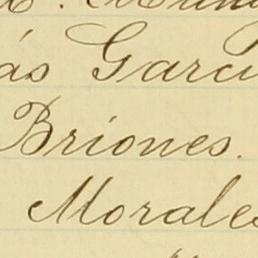 ás Garci
Briones.
Morales